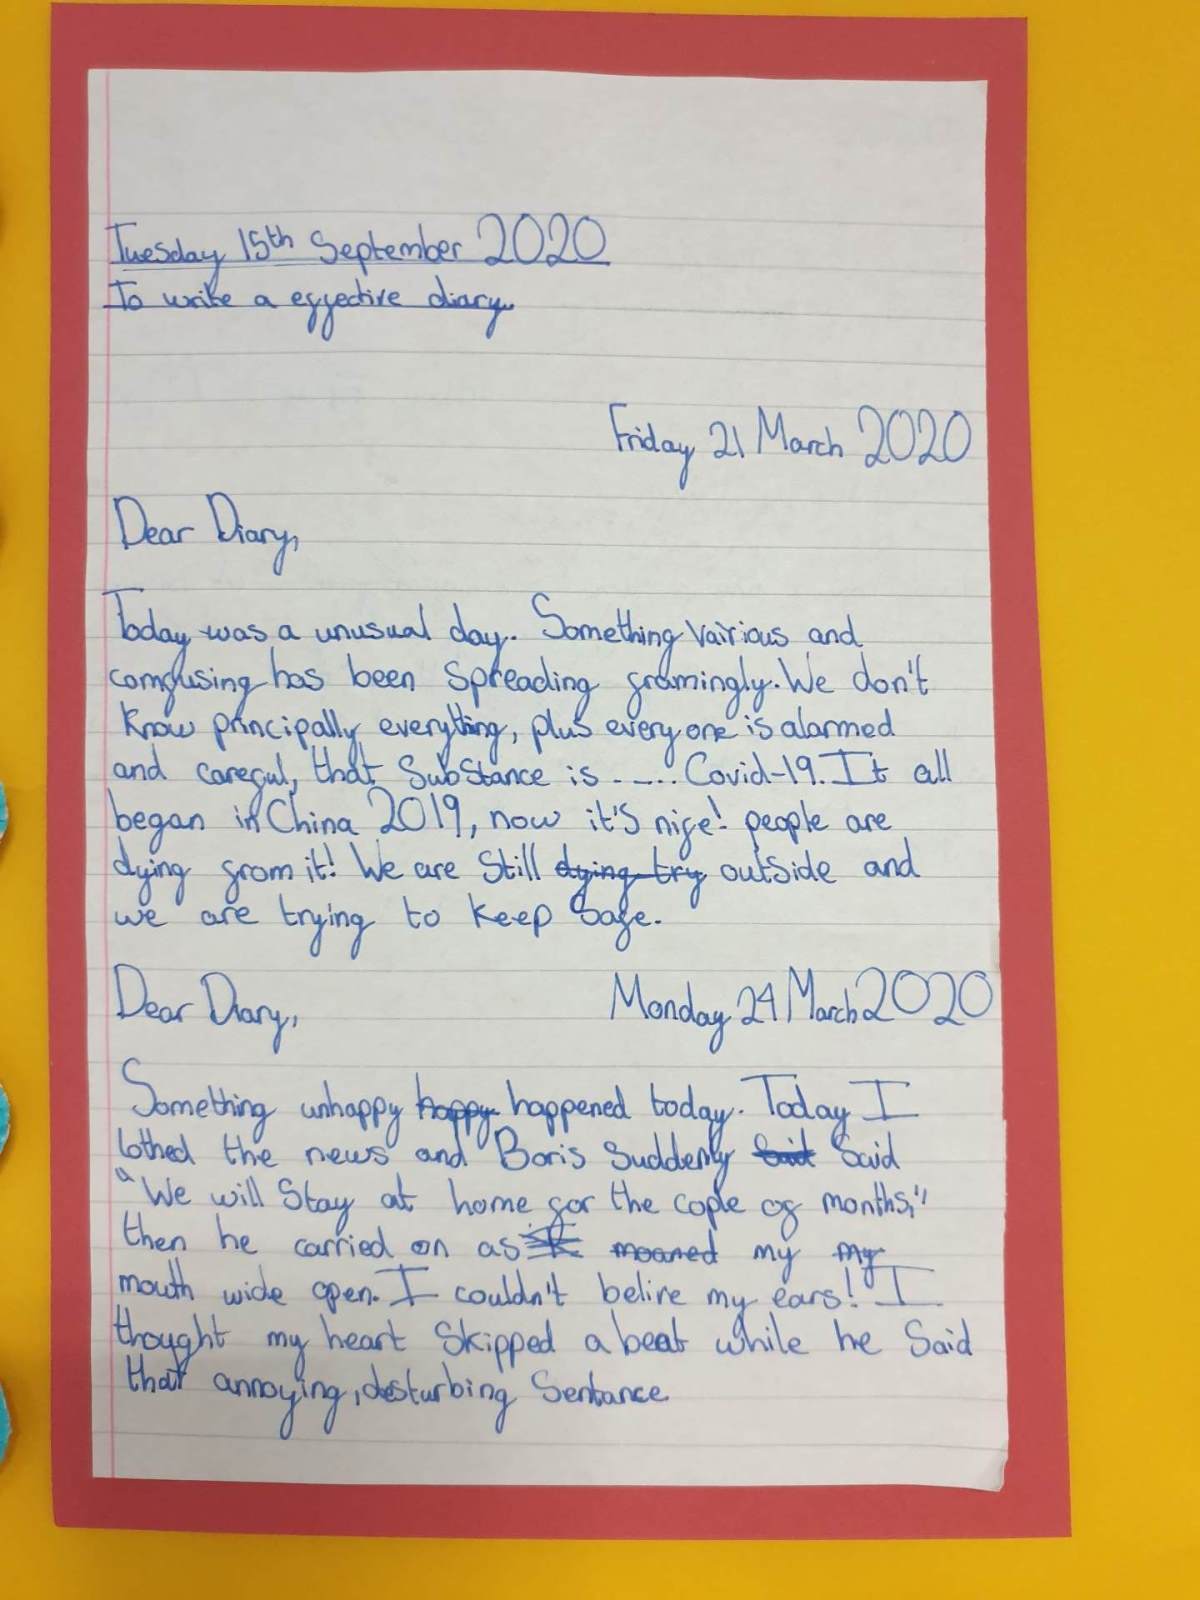 Tuesday 15th September 2020
To write a effective diary.
Friday 21 March 2020
Dear Diary,
Today was a unusual day. Something vairious and
comfusing has been spreading framingly. We don't
know principally everything, plus everyone is alarmed
and careful, that substance is ..... Covid-19. It all
began in China 2019, now it's rife! people are
dying from it! We are still dying try outside and
we are trying to keep safe.
Dear Diary, Monday 24 March 2020
Something unhappy happy happened today. Today I
lothed the news and Boris suddenly said said
"We will stay at home for the cople of months,"
then he carried on as moaned my my
mouth wide open. I couldn't belive my ears! I
thought my heart skipped a beat while he said
that annoying, desturbing sentance